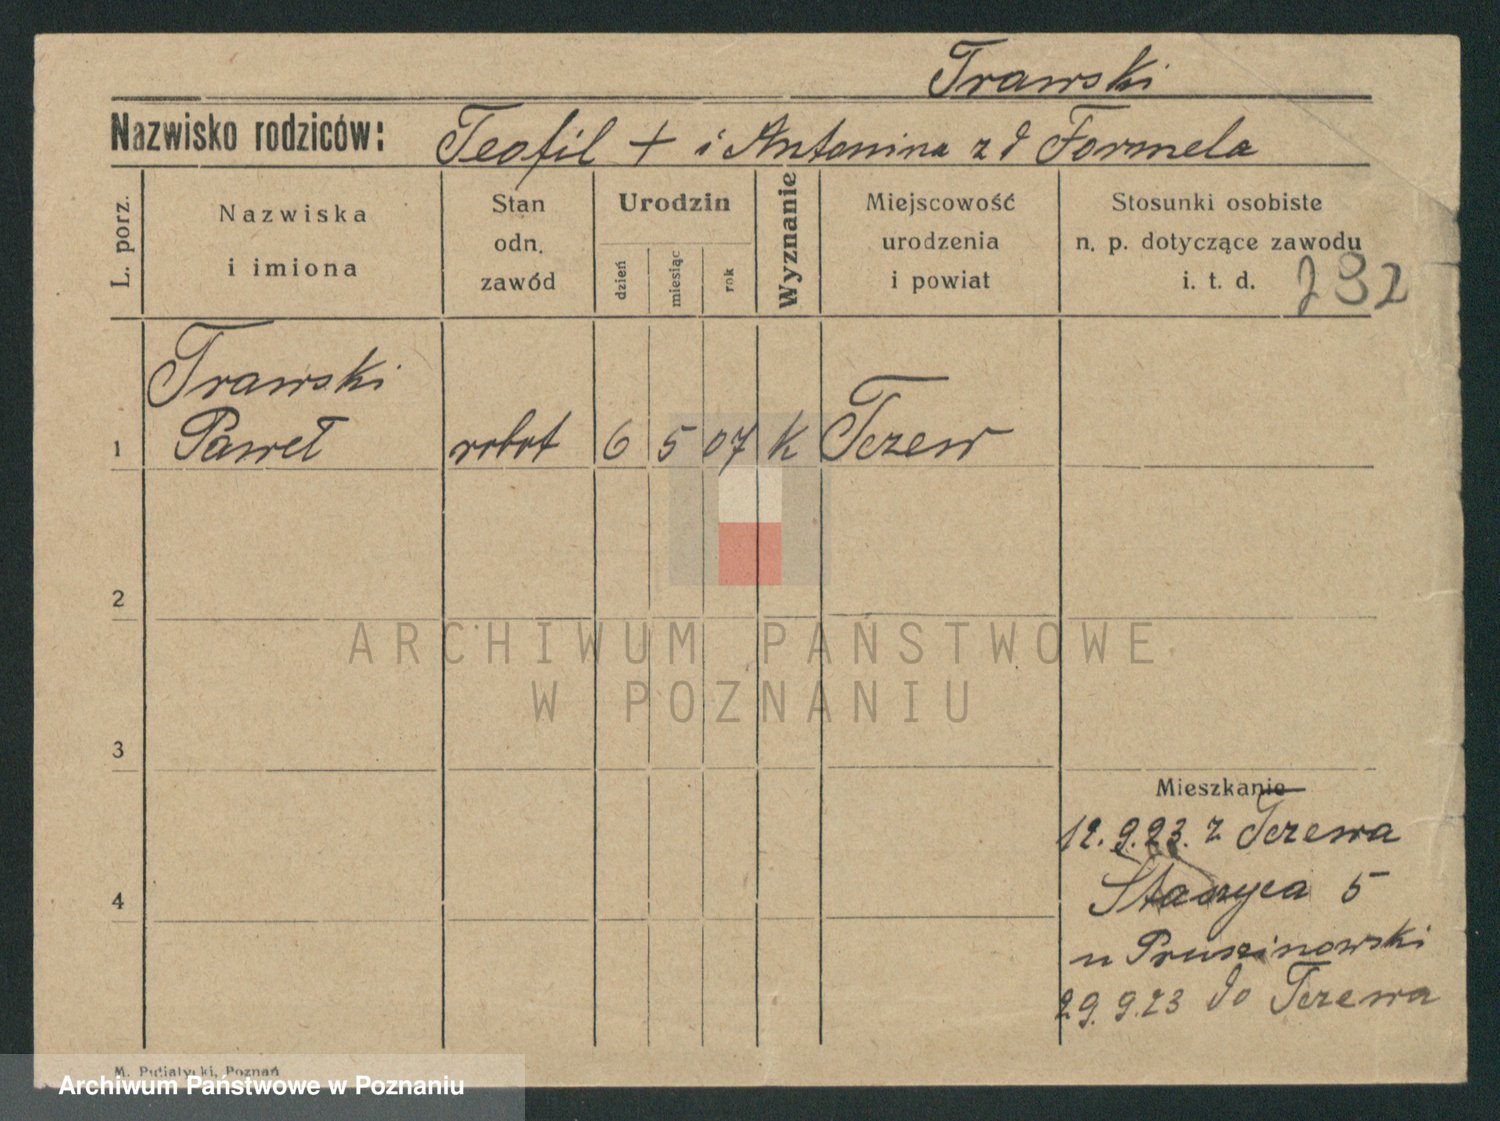 Trawski
Nazwisko rodziców: Teofil + i Antonina z d Formela
L. porz.
Nazwiska
i imiona
Stan
odn.
zawód
Urodzin
dzień
miesiąc
rok
Wyznanie
Miejscowość
urodzenia
i powiat
Stosunki osobiste
n. p. dotyczące zawodu
i. t. d.
232
Trawski
1 Paweł robot 6 5 07 k Tczew
2
ARCHIWUM PAŃSTWOWE
W POZNANIU
3
Mieszkanie
12.9.23. z Tczewa
4
5
u Pruszinowski
29. 9.23 do Tczewa
M. Putiatycki, Poznań
Archiwum Państwowe w Poznaniu